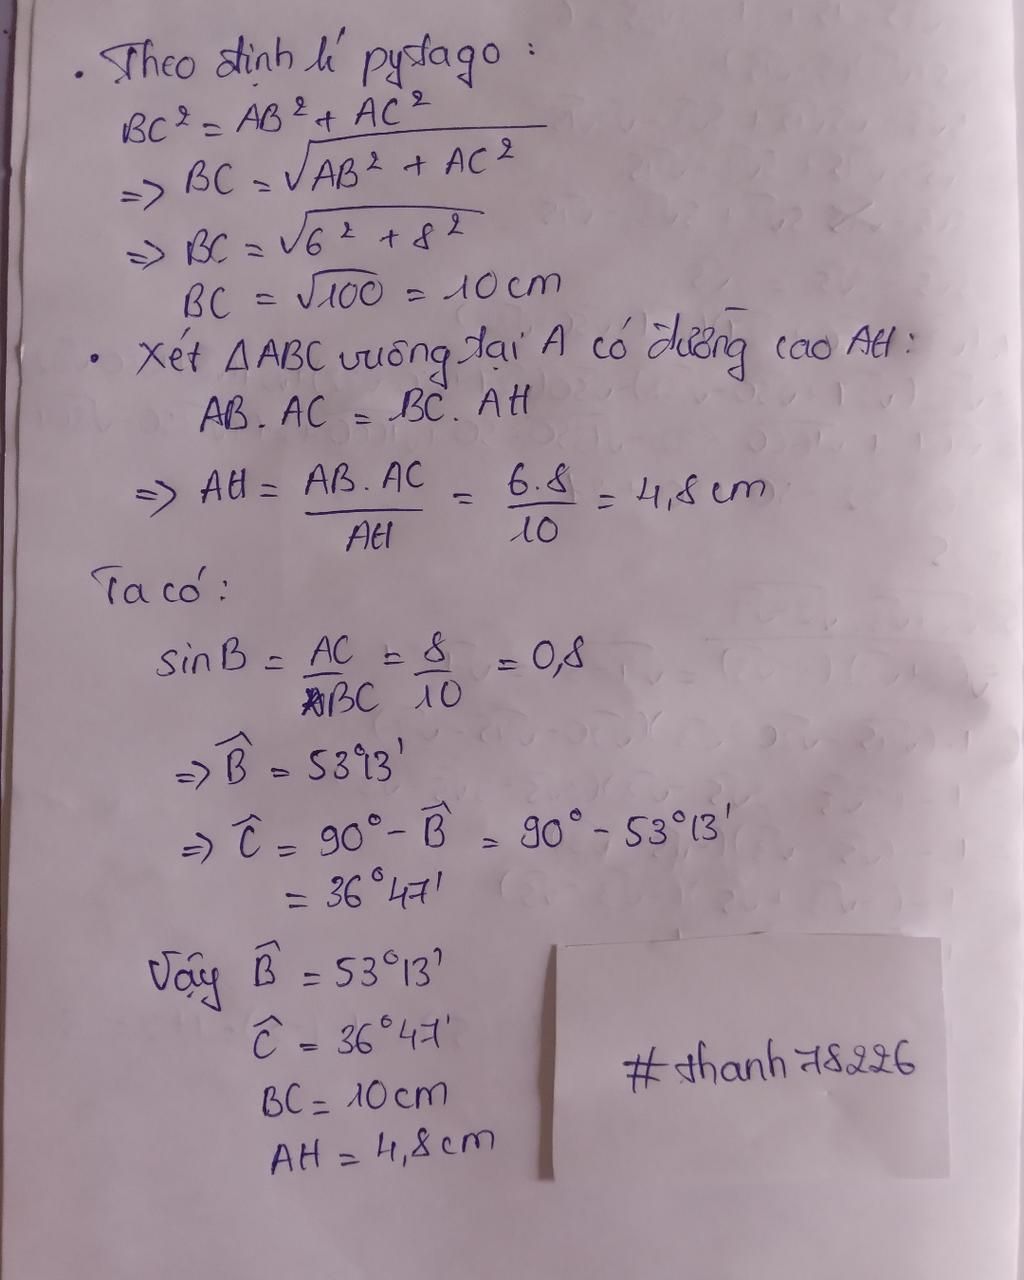 . Theo định lí pytago :
BC² = AB² + AC²
=> BC = √AB² + AC²
=> BC = √6² + 8²
BC = √100 = 10 cm
• Xét ΔABC vuông tại A có đường cao AH :
AB . AC = BC . AH
=> AH = AB . AC / AH = 6.8 / 10 = 4,8 cm
Ta có :
sin B = AC / BC = 8 / 10 = 0,8
=> B̂ = 53°13'
=> Ĉ = 90° - B̂ = 90° - 53°13'
= 36°47'
Vậy B̂ = 53°13'
Ĉ = 36°47'
BC = 10 cm
AH = 4,8 cm
# thanh 78226